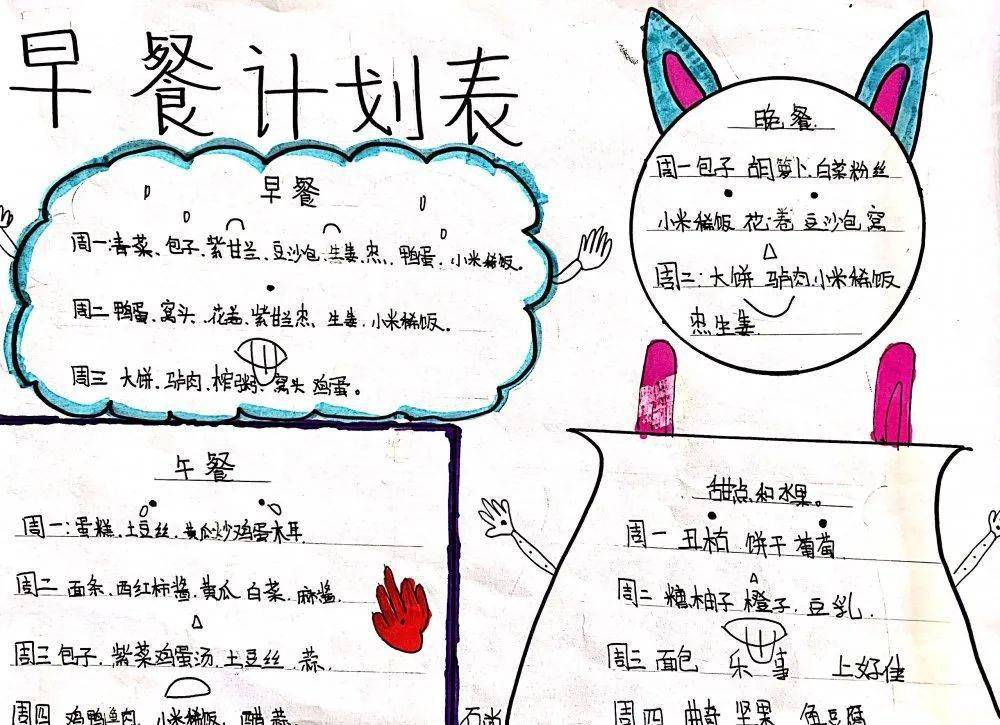 早餐计划表
早餐
周一:青菜、包子、紫甘兰、豆沙包、生姜、鸭蛋、小米稀饭。
周二鸭蛋、窝头、紫甘兰、生姜、小米稀饭。
周三 大饼、驴肉、窝头 鸡蛋。
晚餐
周一包子 胡萝卜、白菜粉丝
小米稀饭 花卷 豆沙包 窝
周二:大饼 驴肉 小米稀饭
生姜
午餐
周一:蛋糕、土豆丝、黄瓜炒鸡蛋木耳
周二 面条、西红柿酱、黄瓜、白菜、麻酱.
周三包子、紫菜鸡蛋汤、土豆丝、蒜.
周四 鸡鸭鱼肉、小米稀饭、蒜
甜点和水果。
周一 丑桔 饼干 葡萄
周二 柚子 橙子、豆乳.
周三 面包 乐事 上好佳
周四 曲奇 坚果 鱼豆腐